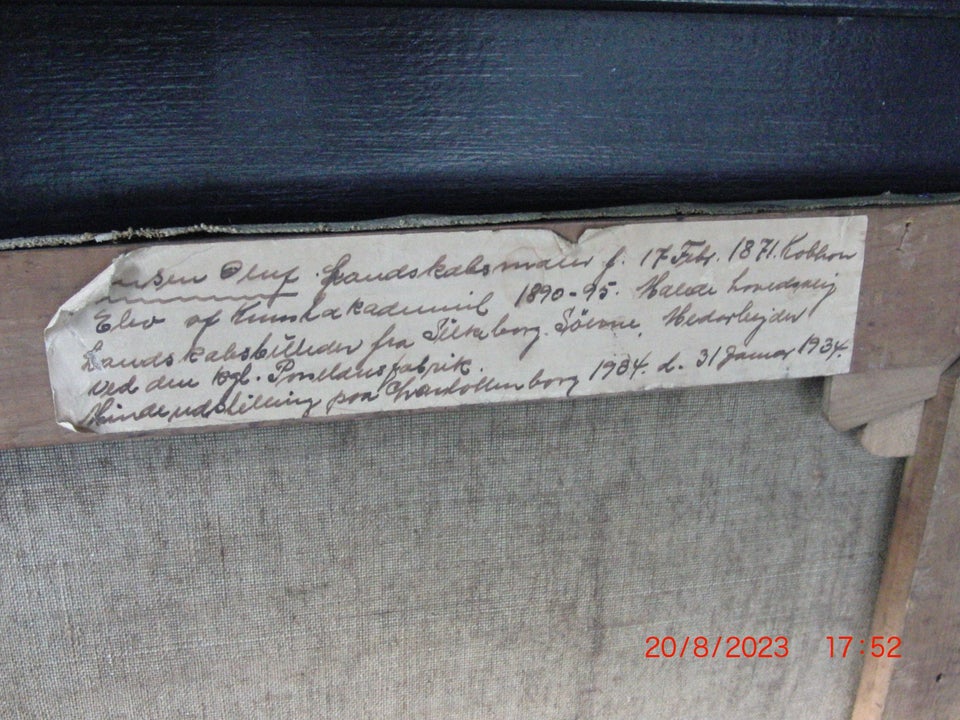 nsen Oluf. Landskabsmaler f. 17 Febr. 1871. Kobhvn
Elev af Kunstakademiet 1890-95. Malede hovedsaglig
Landskabsbilleder fra Silkeborg Søerne. Medarbejder
ved den kgl. Porcellænsfabrik.
Mindeudstilling paa Charlottenborg 1934. d. 31 Januar 1934.
20/8/2023 17:52